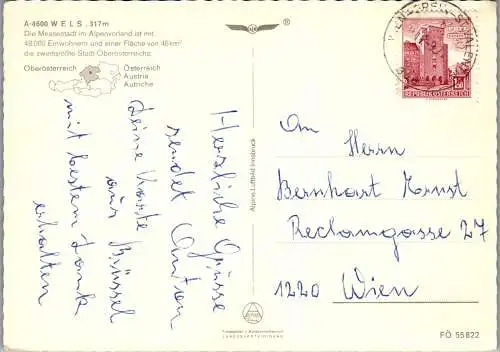 A-4600 WELS, 317m
Die Messestadt im Alpenvorland ist mit
48.000 Einwohnern und einer Fläche von 46 km²
die zweitgrößte Stadt Oberösterreichs
Oberösterreich
Österreich
Austria
Autriche
Herzliche Grüsse
sendet Anton
Deine Karte
aus Brüssel
mit bestem Dank
erhalten
Alpine Luftbild Innsbruck
REPUBLIK ÖSTERREICH
An
Herrn
Bernhart Ernst
Reclamgasse 27
1220 Wien
LANDESVERTEIDIGUNG
FÖ 55822